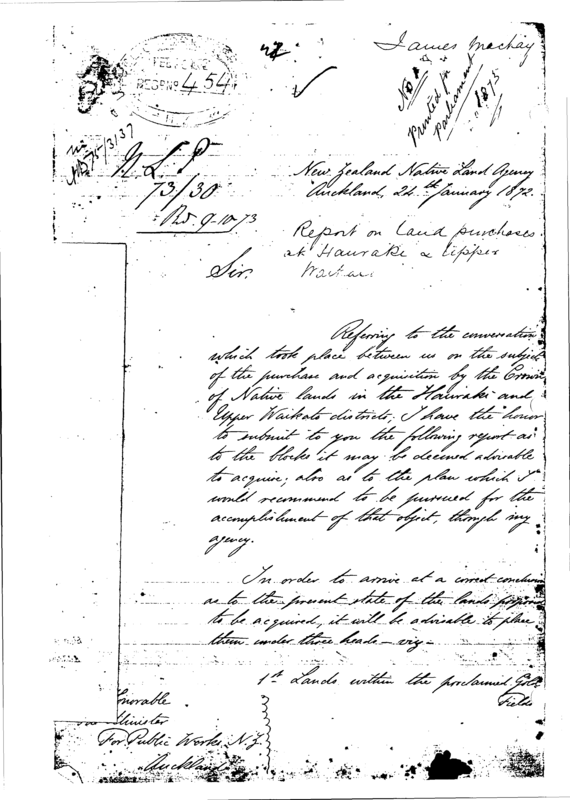 James Mackay
No 8
Printed for
Parliament
1873
REGD No 454
N.L.P
73/30
Rd. 9-10-73
New Zealand Native Land Agency
Auckland, 24th January 1872.
Report on Land purchases
at Hauraki & Upper
Waikato
Sir.
Referring to the conversation
which took place between us on the subject
of the purchase and acquisition by the Crown
of Native lands in the Hauraki and
Upper Waikato districts; I have the honor
to submit to you the following report as
to the blocks it may be deemed advisable
to acquire; also as to the plan which I
would recommend to be pursued for the
accomplishment of that object, through my
agency.
In order to arrive at a correct conclusion
as to the present state of the lands proposed
to be acquired, it will be advisable to place
them under three heads - viz -
1st Lands within the proclaimed Gold
Fields
Honorable
Minister
For Public Works N.Z.
Auckland